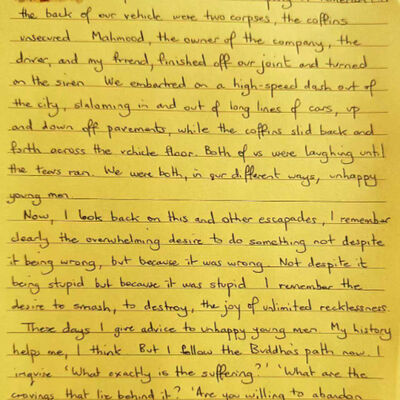 the back of our vehicle were two corpses, the coffins
unsecured. Mahmood, the owner of the company, the
driver, and my friend, finished off our joint and turned
on the siren. We embarked on a high-speed dash out of
the city, slaloming in and out of long lines of cars, up
and down off pavements, while the coffins slid back and
forth across the vehicle floor. Both of us were laughing until
the tears ran. We were both, in our different ways, unhappy
young men.
Now, I look back on this and other escapades, I remember
clearly the overwhelming desire to do something not despite
it being wrong, but because it was wrong. Not despite it
being stupid but because it was stupid. I remember the
desire to smash, to destroy, the joy of unlimited recklessness.
These days I give advice to unhappy young men. My history
helps me, I think. But I follow the Buddha's path now. I
inquire 'What exactly is the suffering?' 'What are the
cravings that lie behind it?' 'Are you willing to abandon